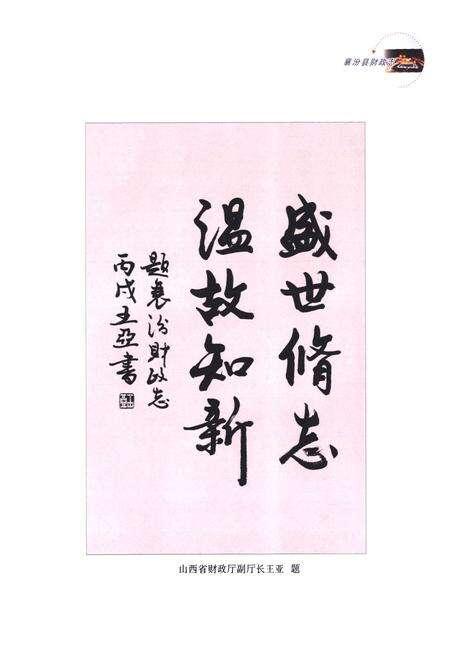 襄汾县财政志
盛世脩志
温故知新
题襄汾财政志
丙戌王亞書
山西省财政厅副厅长王亚 题